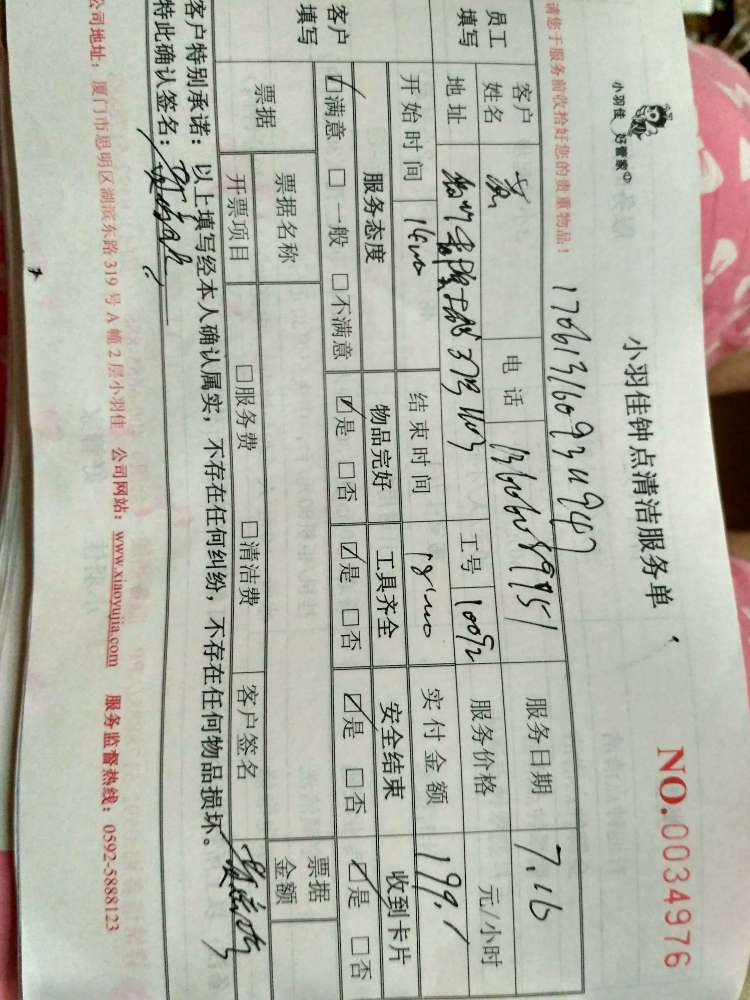 小羽佳 好管家
小羽佳钟点清洁服务单
NO.0034976
请您于服务前收拾好您的贵重物品!
员工填写
客户姓名 黄 电话 服务日期 7.16
地址 工号 10092 服务价格 元/小时
开始时间 14:00 结束时间 18:00 实付金额 199.1
客户填写
服务态度 物品完好 工具齐全 安全结束 收到卡片
☑满意 □一般 □不满意 ☑是 □否 ☑是 □否 ☑是 □否 ☑是 □否
票据 票据名称 票据金额
开票项目 □服务费 □清洁费 客户签名
客户特别承诺: 以上填写经本人确认属实,不存在任何纠纷,不存在任何物品损坏。
特此确认签名:
公司地址: 厦门市思明区湖滨东路319号A幢2层小羽佳 公司网站: www.xiaoyujia.com 服务监督热线: 0592-5888123